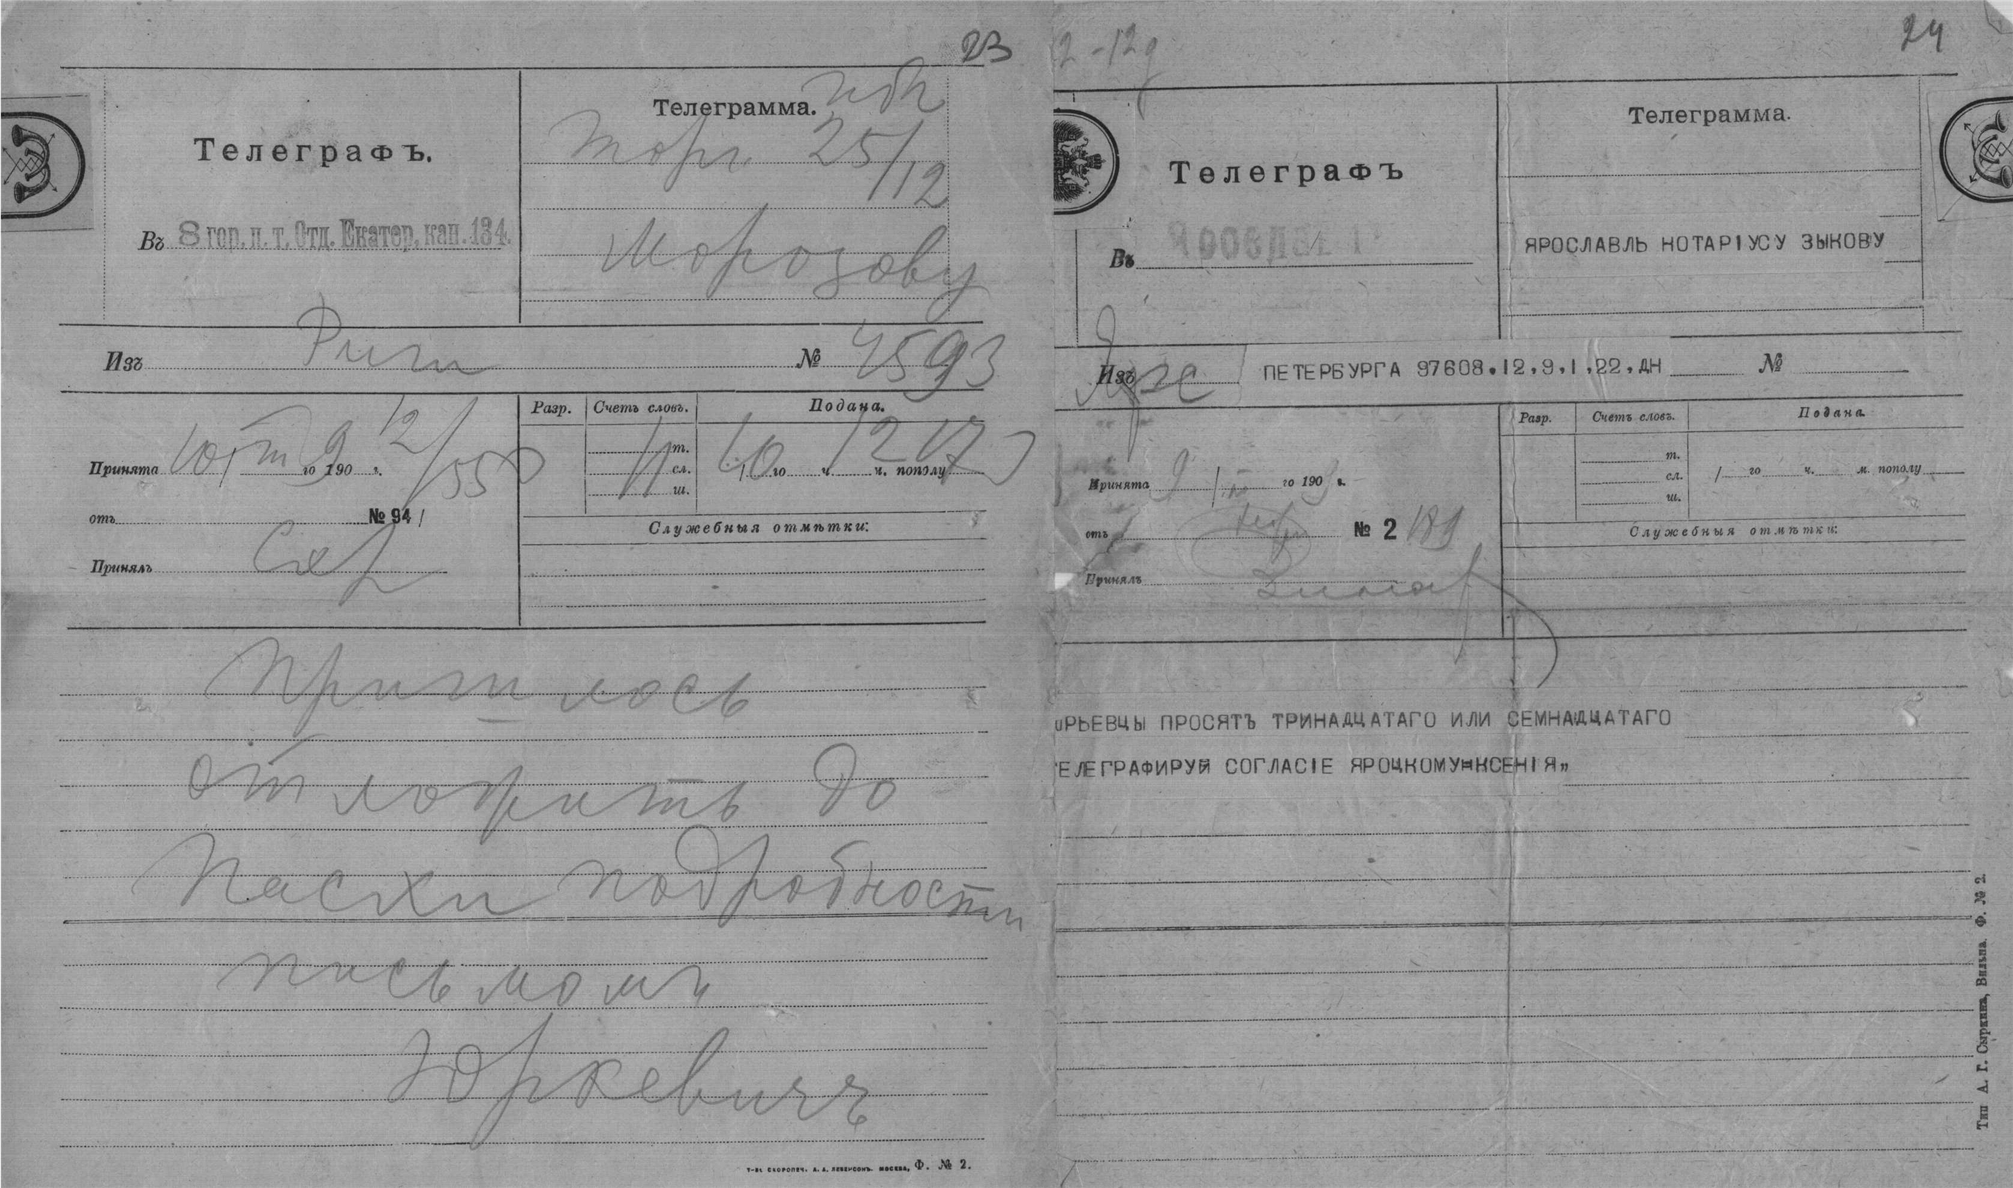 23
Телеграфъ.
Въ 8 гор. п. т. Отд. Екатер. кан. 134.
Телеграмма.
Торг. 25/12
Морозову
Изъ Риги № 4593
Принята 10/III го 190 г. 12/55
отъ № 94
Принялъ
Разр. Счетъ словъ. Подана.
11 т. сл. ш.
10 го 12 ч. 17 м. пополу
Служебныя отмѣтки:
Пришлось
отложить до
Пасхи подробности
письмомъ
Юркевичъ
Т-во скоропеч. А. А. Левенсонъ. Москва, Ф. № 2.
2-12д
24
Телеграфъ
Въ
Телеграмма.
ЯРОСЛАВЛЬ НОТАРІУСУ ЗЫКОВУ
Изъ ПЕТЕРБУРГА 97608.12.9.1.22.ДН №
Принята 9/III го 1903 г.
отъ № 2189
Принялъ
Разр. Счетъ словъ. Подана
т. сл. ш.
/ го ч. м. пополу
Служебныя отмѣтки:
ЮРЬЕВЦЫ ПРОСЯТЪ ТРИНАДЦАТАГО ИЛИ СЕМНАДЦАТАГО
ТЕЛЕГРАФИРУЙ СОГЛАСІЕ ЯРОЦКОМУ=КСЕНІЯ„
Тип А. Г. Сыркина, Вильна. Ф. № 2.